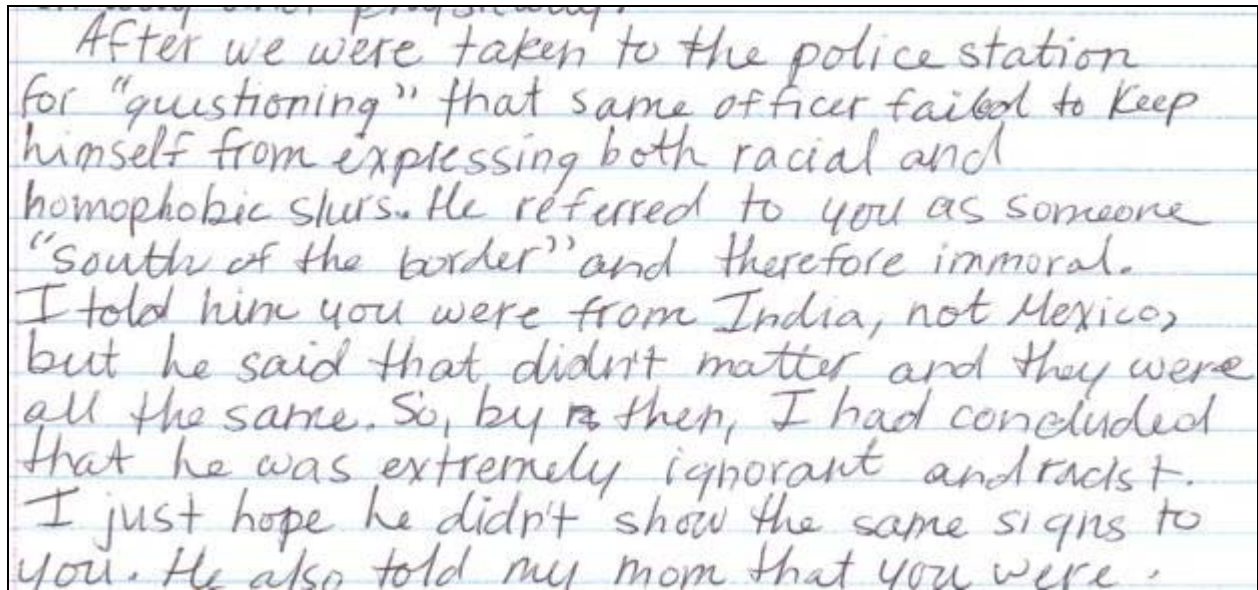 and physically.
After we were taken to the police station
for "quistioning" that same officer failed to keep
himself from expressing both racial and
homophobic slurs. He referred to you as someone
"South of the border" and therefore immoral.
I told him you were from India, not Mexico,
but he said that didn't matter and they were
all the same. So, by then, I had concluded
that he was extremely ignorant and racist.
I just hope he didn't show the same signs to
you. He also told my mom that you were.